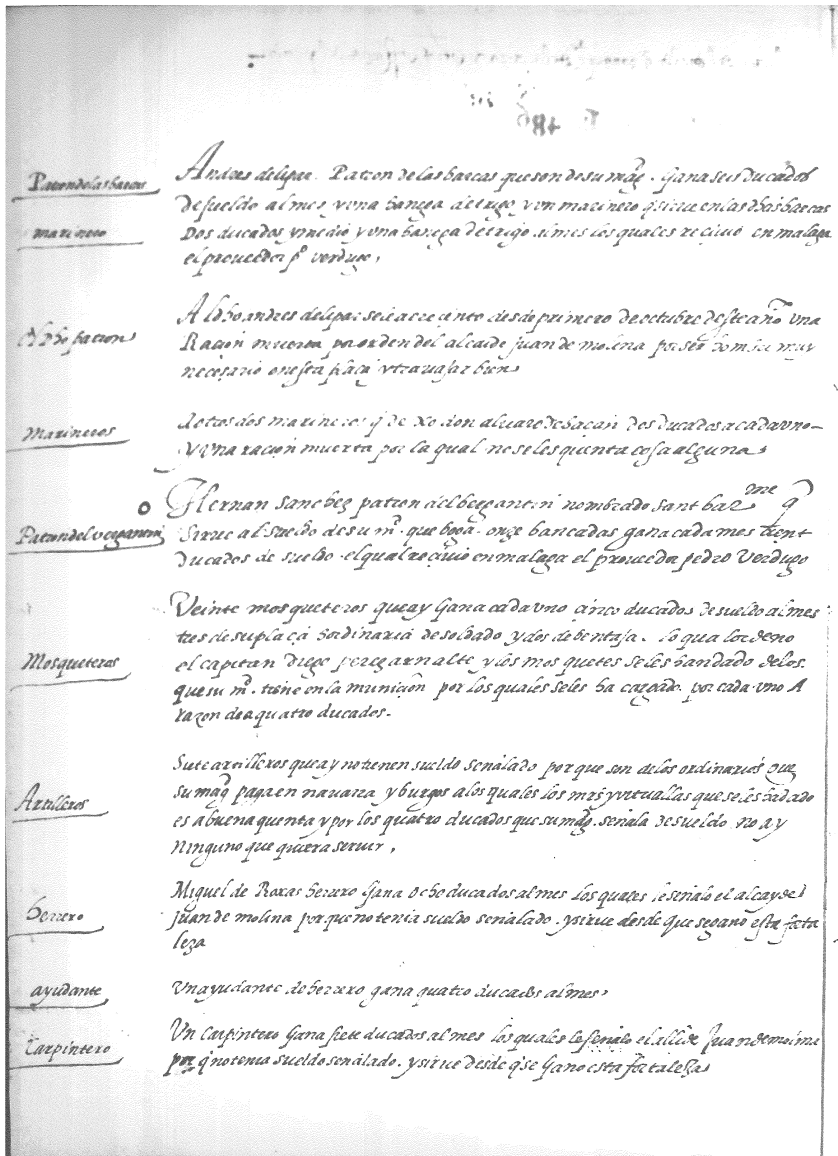 Patron de las barcas
Andres de lipar. Patron de las barcas que son de su mag. Gana seis Ducados
de sueldo al mes y una hanega de trigo y un marinero q sirve en las dhas barcas
marinero
Dos ducados y medio y una hanega de trigo al mes los quales recivio en malaga
el proveedor po verdugo,
Al dho patron
Al dho andres de lipar se le acrecinto desde primero de octubre deste año una
Racion muerta por orden del alcaide juan de molina por ser hombre muy
necesario en esta plaça y travajar bien
Marineros
A otros dos marineros q dexo don alvaro de baçan dos ducados a cada uno
y una racion muerta por la qual no se les quenta cosa alguna
Patron del vergantin
Hernan Sanchez patron del bergantin nombrado sant barme q
sirve al sueldo de su mt. que boga onze bancadas gana cada mes
Ducados de sueldo el qual recivio en malaga el proveedor pedro Verdugo
Mosqueteros
Veinte mosqueteros que ay Gana cada uno cinco ducados de sueldo al mes
tres de su plaça hordinaria de soldado y dos de bentaja. lo qual ordeno
el capitan Diego perez arnalte y los mosquetes se les han dado de los
que su mt. tiene en la municion por los quales se les ha cargado por cada uno A
razon de a quatro ducados.
Artilleros
Siete artilleros que ay no tienen sueldo señalado por que son de los ordinarios que
su mag paga en navarra y burgos a los quales los mrs y vituallas que se les ha dado
es a buena quenta y por los quatro ducados que su mag. señala de sueldo no ay
Ninguno que quiera servir,
herrero
Miguel de Roxas herrero Gana ocho ducados al mes los quales le señalo el alcayde
juan de molina por que no tenia sueldo señalado. y sirve desde que se gano esta forta
leza
ayudante
Un ayudante de herrero gana quatro ducados al mes.
Carpintero
Un Carpintero Gana siete ducados al mes los quales le señalo el allde Juan de molina
por q no tenia sueldo señalado. y sirve desde q se Gano esta fortaleza